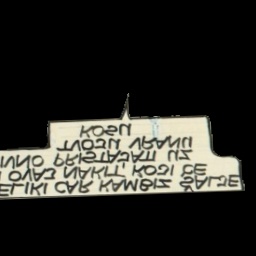 ELIKI CAR KAMBIZ ŠALJE
I OVAJ NAKIT, KOJI ĆE
IVNO PRISTAJATI UZ
TVOJU VRANU
KOSU